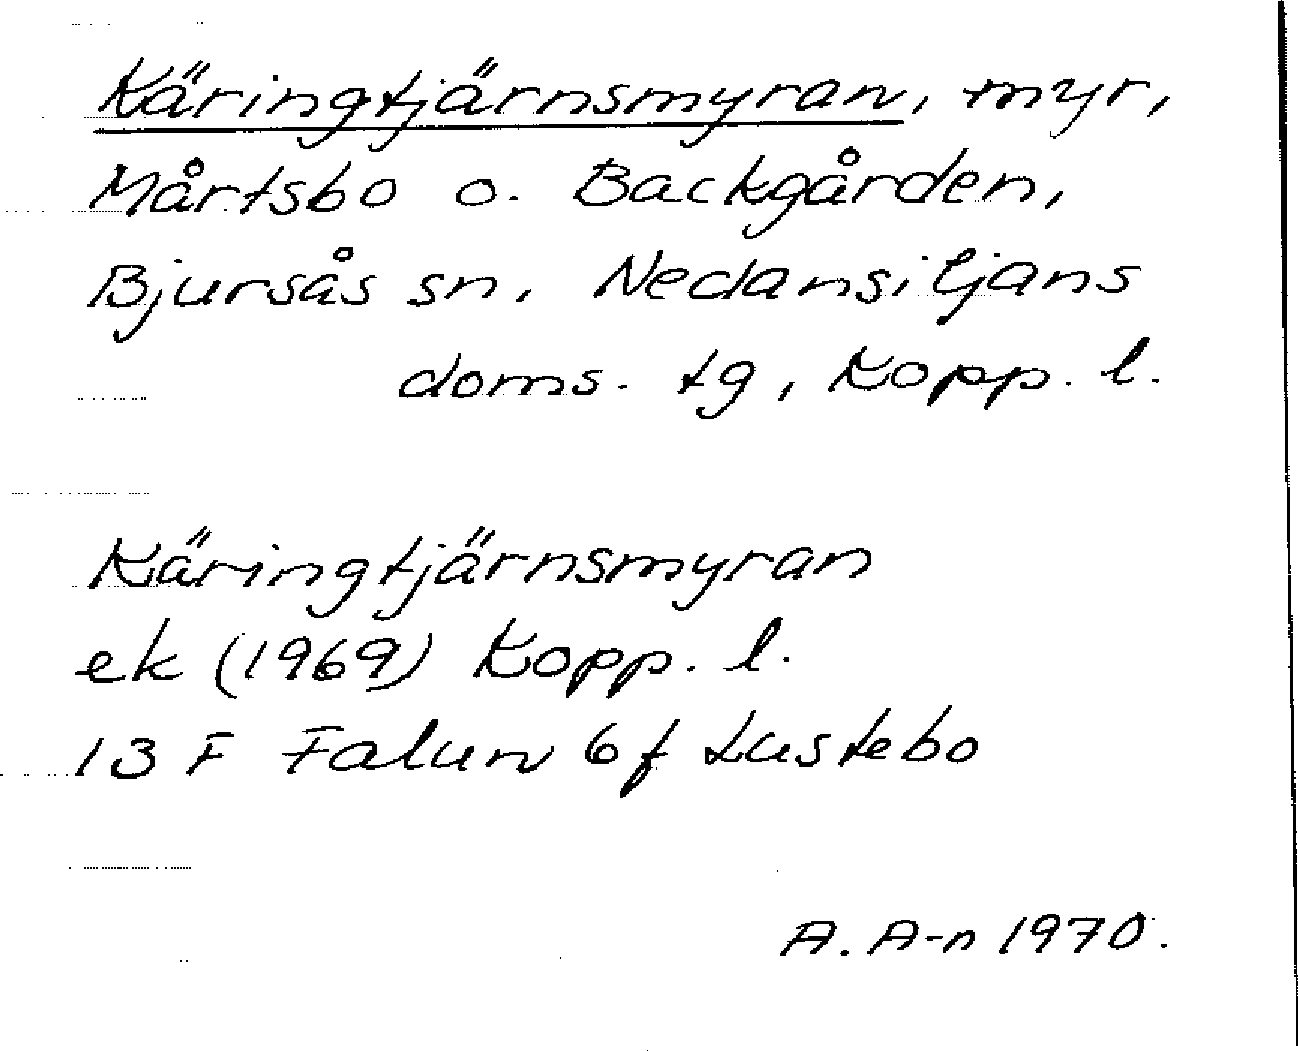 Käringtjärnsmyran, myr,
Mårtsbo o. Backgården,
Bjursås sn, Nedansiljans
doms. tg, Kopp. l.
Käringtjärnsmyran
ek (1969) Kopp. l.
13 F Falun 6f Lustebo
A. A-n 1970.